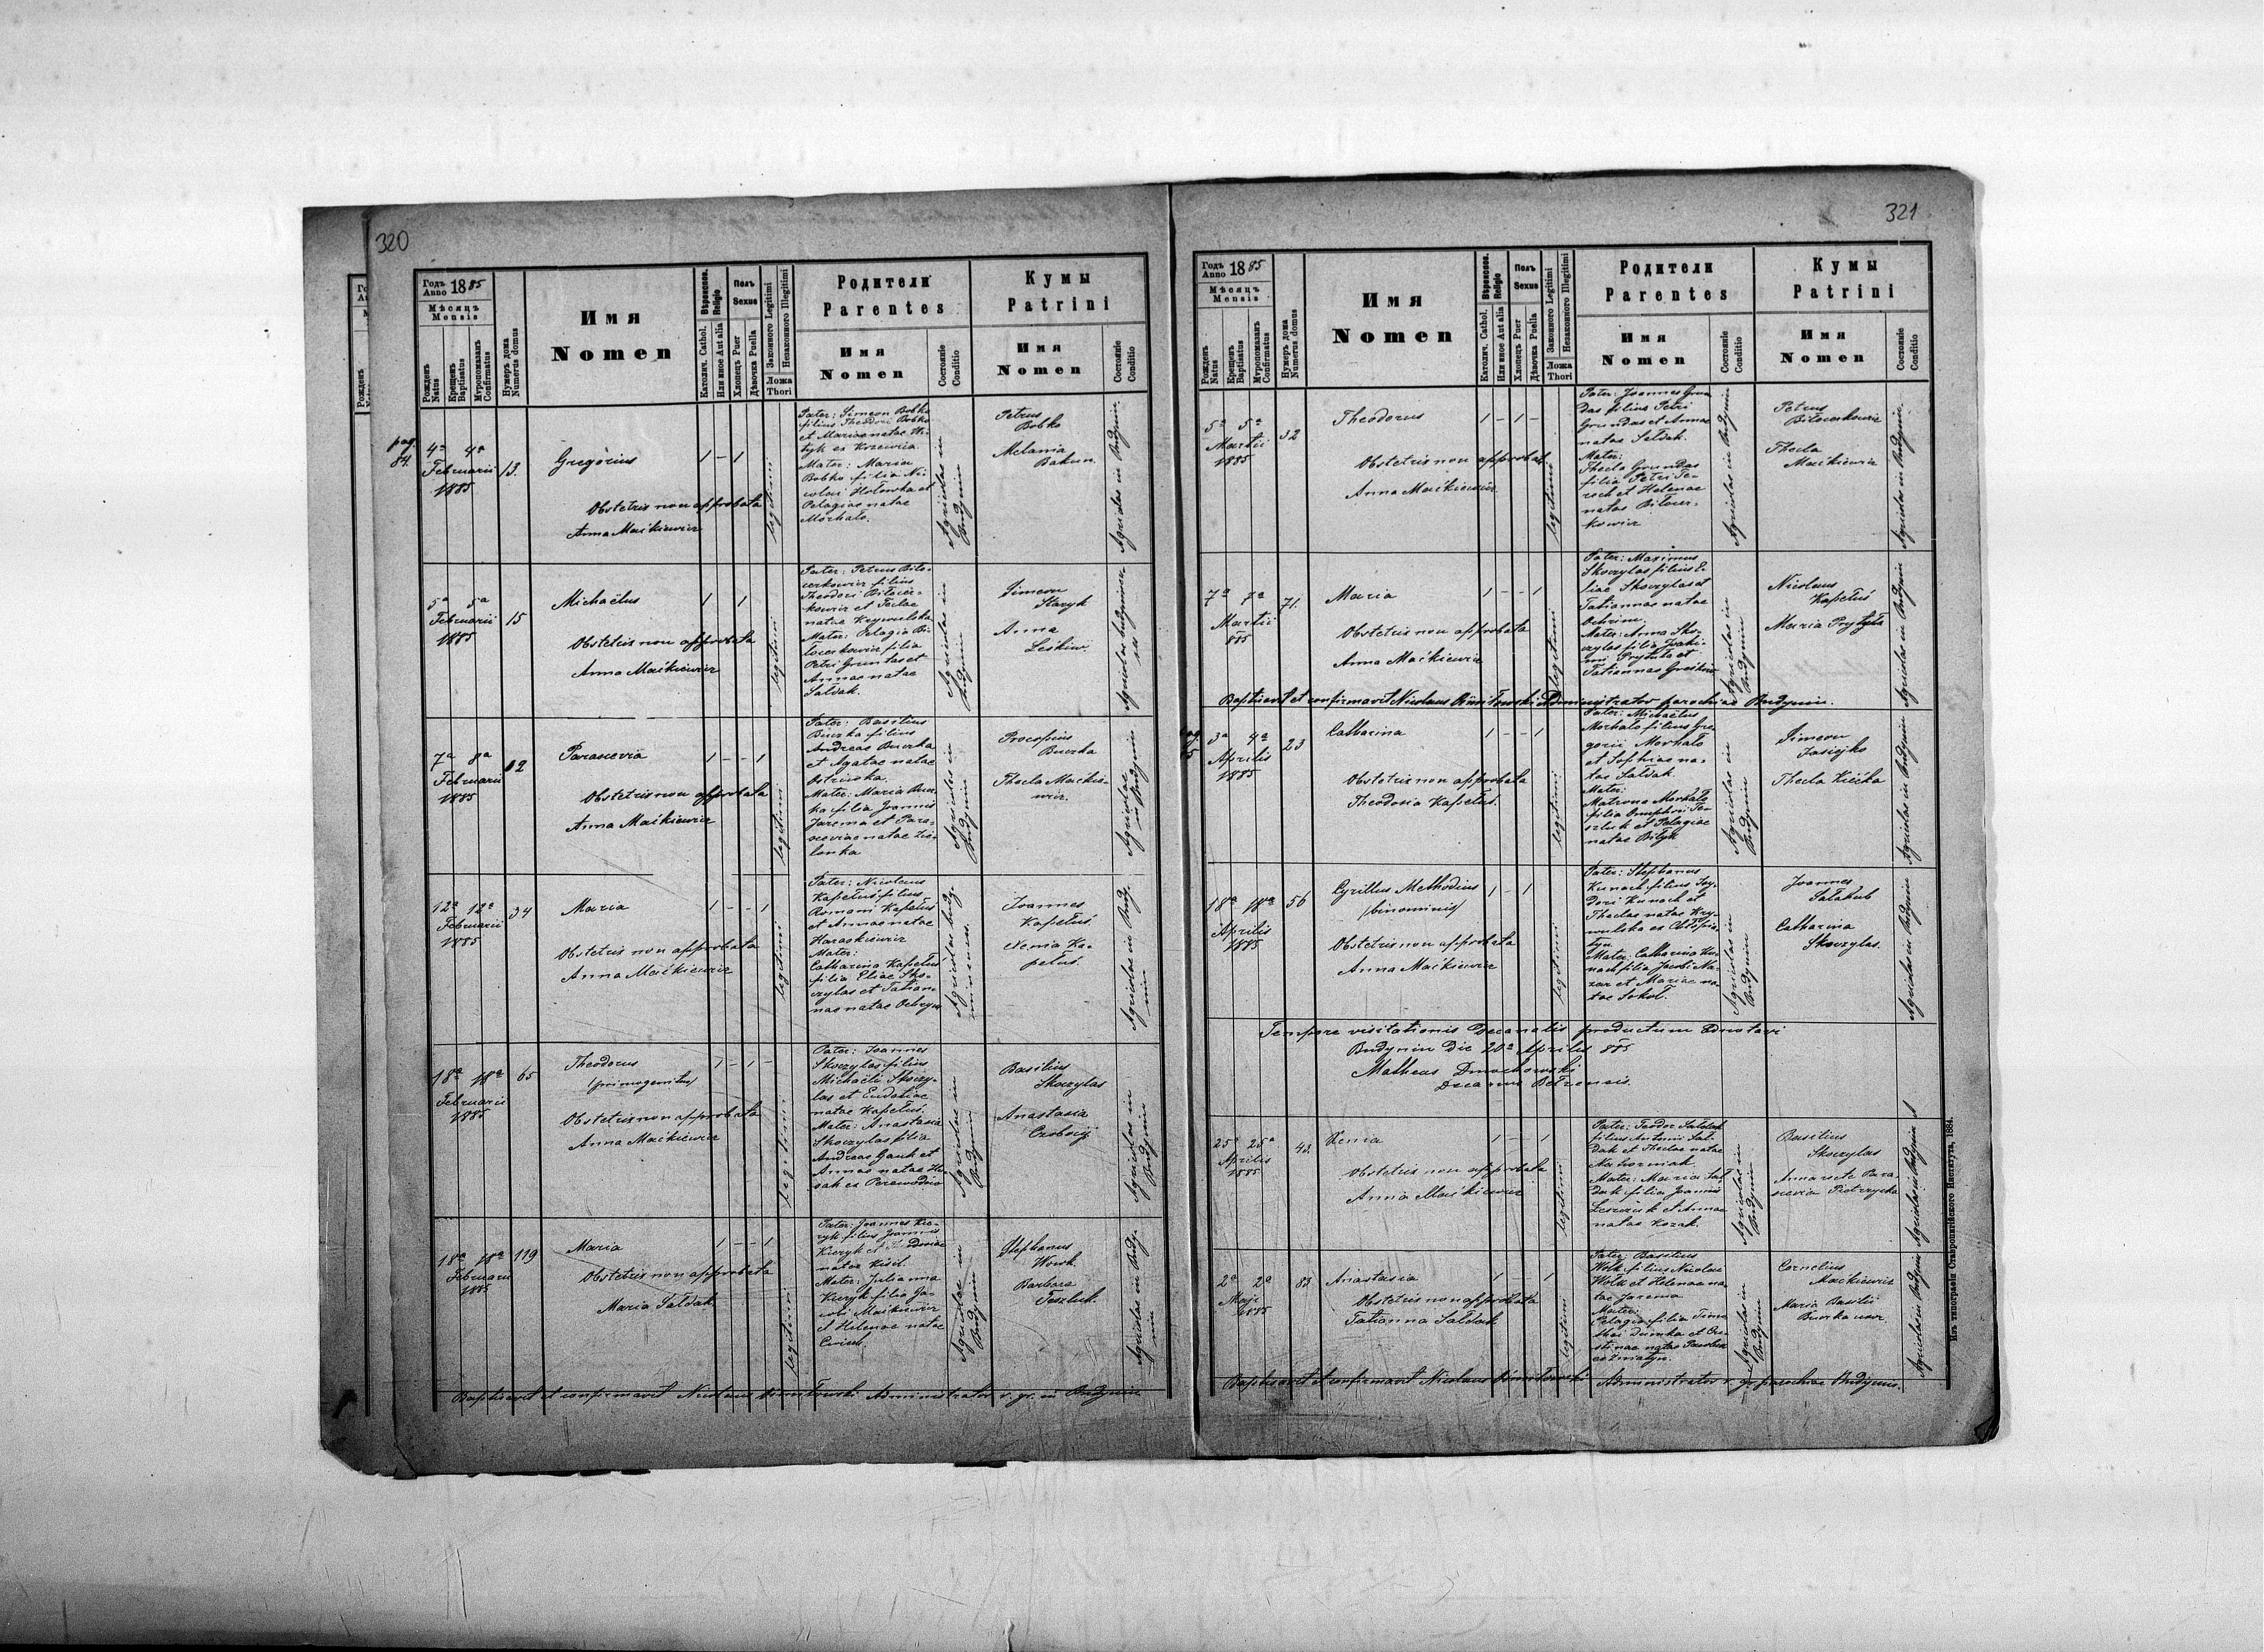 320
Годъ Anno 1885
Мѣсяцъ
Mensis
Рожденъ Natus
Крещенъ Baptisatus
Мѵропомазанъ Confirmatus
Нумеръ дома Numerus domus
Имя
Nomen
Вѣроиспов. Religio
Католич. Cathol.
Или иное Aut alia
Полъ
Sexus
Хлопецъ Puer
Дѣвочка Puella
Законного Legitimi
Незаконного Illegitimi
Ложа
Thori
Родители
Parentes
Имя
Nomen
Состояніе Conditio
Кумы
Patrini
Имя
Nomen
Состояніе Conditio
pag.
84.
4ª 4ª
Februarii
1885
13.
Gregorius
Obstetrix non approbata
Anna Maćkiewicz
1 - 1
legitimi
Pater: Simeon Bobko
filius Theodori Bobko
et Mariae natae
Mater: Maria
Bobko filia Ni-
colai Hołowka et
Pelagiae natae
Morhało.
Agricolae in
Budynin
Petrus
Bobko
Melania
Bakun
Agricolae in Budynin.
5ª 5ª
Februarii
1885
15
Michaëlus
Obstetrix non approbata
Anna Maćkiewicz
1 1
legitimi
Pater: Petrus Biło-
cerkowicz filius
Theodori Biłocer-
kowicz et Teclae
natae Krywulska
Mater: Pelagia Bi-
łocerkowicz filia
Petri Grundas et
Annae natae
Sałdak.
Agricolae in
Budynin
Simeon
Staryk
Anna
Leśkiw.
Agricolae budyninen-
ses
7ª 8ª
Februarii
1885
82
Parascevia
Obstetrix non approbata
Anna Maćkiewicz
1 - - 1
legitimi
Pater: Basilius
Buczka filius
Andreae Buczka
et Agatae natae
Mater: Maria Bucz-
ka filia Joannis
Jarema et Para-
sceviae natae Zie-
lonka
Agricolae in
Budynin
Procopius
Buczka
Thecla Maćkie-
wicz.
Agricolae
in Budynin
12ª 12ª
Februarii
1885
34
Maria
Obstetrix non approbata
Anna Maćkiewicz
1 - - 1
legitimi
Pater: Nicolaus
Kapełuś filius
Romani Kapełuś
et Annae natae
Haraskiewicz
Mater:
Catharina Kapełuś
filia Eliae Sko-
czylas et Tatian-
nae natae Ochrym
Agricolae budy-
ninenses.
Joannes
Kapełuś
Xenia Ka-
pełuś.
Agricolae in Budy-
nin
18ª 18ª
Februarii
1885
65
Theodorus
/primogenitus/
Obstetrix non approbata
Anna Maćkiewicz
1 - 1 -
legitimi
Pater: Joannes
Skoczylas filius
Michaëli Skoczy-
las et Eudoxiae
natae Kapełuś.
Mater: Anastasia
Skoczylas filia
Andreae Gauk et
Annae natae Hu-
sak ex Perewodow
Agricolae in
Budynin
Basilius
Skoczylas
Anastasia
Agricolae in
Budynin
18ª 18ª
Februarii
1885
119
Maria
Obstetrix non approbata
Maria Sałdak
1 - - 1
legitimi
Pater: Joannes Kie-
ryk filius Joannis
Kieryk et Theodosiae
natae Kisil.
Mater: Julianna
Kieryk filia Ja-
cobi Maćkiewicz
et Helenae natae
Agricolae in
Budynin
Stephanus
Wowk.
Barbara
Teszluk.
Agricolae in Budy-
nin
Baptisavit et confirmavit Nicolaus Administrator r. gr. in Budynin
321
Годъ Anno 1885
Мѣсяцъ
Mensis
Рожденъ Natus
Крещенъ Baptisatus
Мѵропомазанъ Confirmatus
Нумеръ дома Numerus domus
Имя
Nomen
Вѣроиспов. Religio
Католич. Cathol.
Или иное Aut alia
Полъ
Sexus
Хлопецъ Puer
Дѣвочка Puella
Законного Legitimi
Незаконного Illegitimi
Ложа
Thori
Родители
Parentes
Имя
Nomen
Состояніе Conditio
Кумы
Patrini
Имя
Nomen
Состояніе Conditio
5ª 5ª
Martii
1885
32
Theodorus
Obstetrix non approbata
Anna Maćkiewicz.
1 - 1 -
legitimi
Pater: Joannes Grun-
das filius Petri
Grundas et Annae
natae Sałdak.
Mater:
Thecla Grundas
filia Petri Te-
rech et Helenae
natae Biłocer-
kowicz
Agricolae in Budynin
Petrus
Biłocerkowicz
Thecla
Maćkiewicz
Agricolae in Budynin.
7ª 7ª
Martii
885
71.
Maria
Obstetrix non approbata
Anna Maćkiewicz
1 - - 1
legitimi
Pater: Maximus
Skoczylas filius E-
liae Skoczylas et
Tatiannae natae
Ochrim.
Mater: Anna Sko-
czylas filia Joaki-
mi Prytuła et
Tatiannae Greśkiw
Agricolae in
Budynin
Nicolaus
Kapełuś
Maria Prytyła
Agricolae in Budynin
Baptisavit et confirmavit Nicolaus Administrator parochiae Budynin.
pag.
85
3ª 4ª
Aprilis
1885
23
Catharina
Obstetrix non approbata
Theodosia Kapełuś.
1 - - 1
legitimi
Pater: Michaëlus
Morhało filius Gre-
gorii Morhało
et Sophiae na-
tae Sałdak.
Mater:
Matrona Morhało
filia Onuphrii Te-
szluk et Pelagiae
natae Biłyk
Agricolae in
Budynin
Simeon
Jasiejko
Thecla Kićka
Agricolae in Budynin
18ª 18ª
Aprilis
1885
56
Cyrillus Methodius
/binominis/
Obstetrix non approbata
Anna Maćkiewicz
1 - 1
legitimi
Pater: Stephanus
Kunach filius Isy-
dori Kunach et
Theclae natae Kry-
wulska ex Chłopia-
tyn.
Mater: Catharina Ku-
nach filia Jacobi Na-
zar et Mariae na-
tae Sokoł.
Agricolae in
Budynin
Joannes
Sałakub
Catharina
Skoczylas.
Agricolae in Budynin
Tempore visitationis Decanalis productum adnotavi
Budynin die 20ª Aprilis 885
Matheus Dmochowski
Decanus Belzensis.
25ª 25ª
Aprilis
1885
43.
Xenia
Obstetrix non approbata
Anna Maćkiewicz
1 - 1
legitimi
Pater: Teodor Sałdak
filius Antonii Sał-
dak et Theclae natae
Mahorniak.
Mater: Maria Sał-
dak filia Joannis
et Annae
natae Kozak.
Agricolae in
Budynin
Basilius
Skoczylas
Anna recte Para-
scevia Piotrzycka
Agricolae in Budynin
2ª 2ª
Maji
1885
83.
Anastasia
Obstetrix non approbata
Tatianna Sałdak
1 - 1
legitimi
Pater: Basilius
Wołk filius Nicolai
Wołk et Helenae na-
tae Jarema
Mater:
Pelagia filia Timo-
thei Dumka et Chri-
stinae natae
ex Żniatyn.
Agricolae in
Budynin
Cornelius
Maćkiewicz
Maria Basilii
Buczka uxor
Agricolae in Budynin
Baptisavit et confirmavit Nicolaus Administrator r. gr. parochiae Budynin.
Изъ типографіи Ставропигійского Института, 1884.